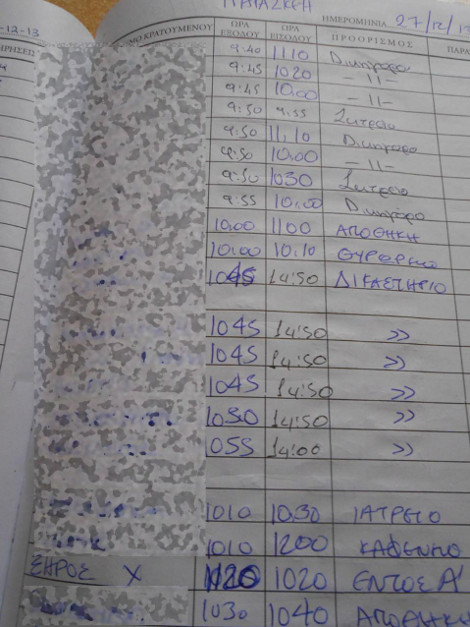 -12-13
ΠΑΡΑΣΚΕΥΗ
ΗΜΕΡΟΜΗΝΙΑ 27/12/13
ΚΡΑΤΟΥΜΕΝΟΥ ΩΡΑ ΕΞΟΔΟΥ ΩΡΑ ΕΙΣΟΔΟΥ ΠΡΟΟΡΙΣΜΟΣ ΠΑΡΑ
9:40 1110 Δικηγόρο
9:45 1020 -11-
9:45 10:00 -11-
9:50 9:55 Ιατρείο
9:50 11,10 Δικηγόρο
9:50 10:00 -11-
9:50 1030 Ιατρείο
9:55 10:00 Δικηγόρο
10:00 1100 ΑΠΟΘΗΚΗ
10:00 10:10 ΘΥΡΩΡΕΙΟ
1045 14:50 ΔΙΚΑΣΤΗΡΙΟ
1045 14:50 >>
1045 14:50 >>
1045 14:50 >>
1030 14:50 >>
1055 14:00 >>
1010 1030 ΙΑΤΡΕΙΟ
1010 1200 ΚΑΦΕΝΕΙΟ
ΞΗΡΟΣ Χ 1020 ΕΝΤΟΣ Α'
1030 1040 ΑΠΟΘΗΚΗ